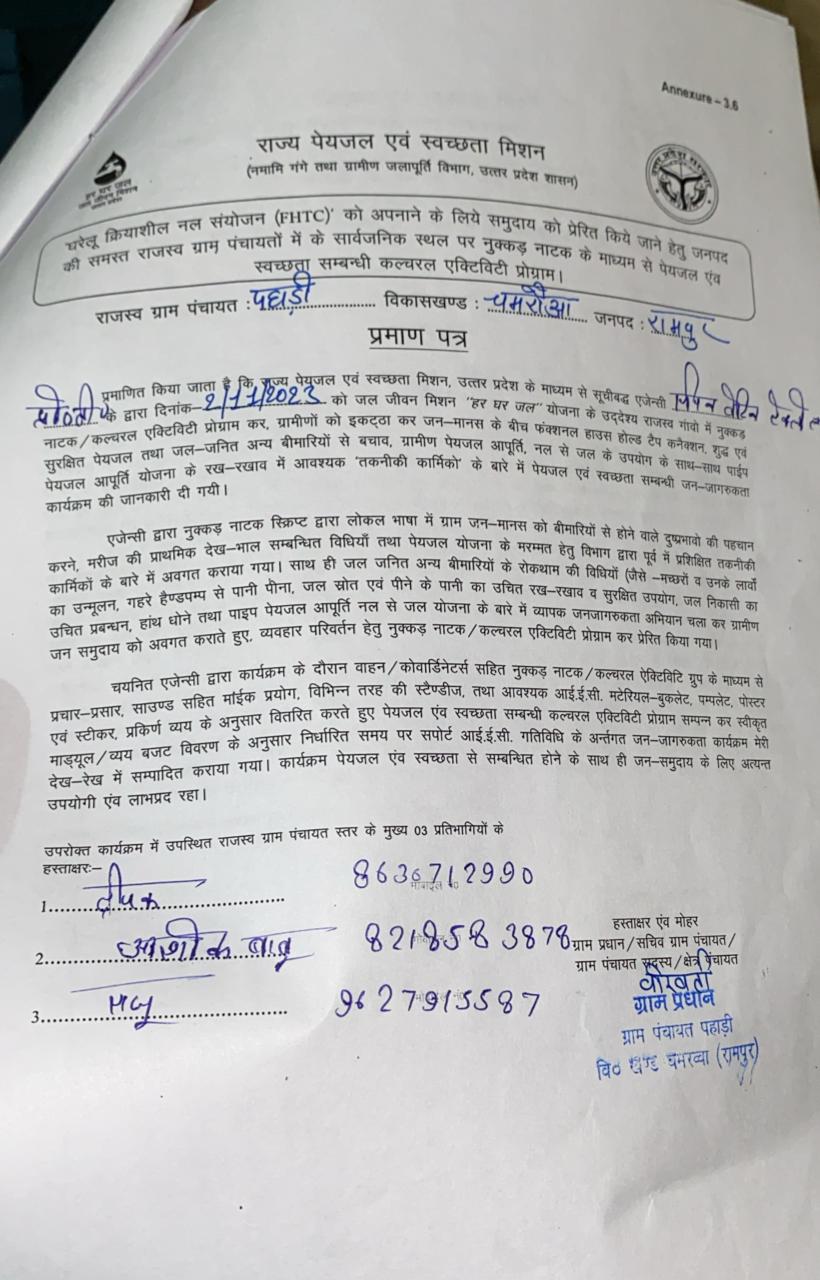 Annexure – 3.6
राज्य पेयजल एवं स्वच्छता मिशन
(नमामि गंगे तथा ग्रामीण जलापूर्ति विभाग, उत्तर प्रदेश शासन)
हर घर जल
जल जीवन मिशन
घरेलू क्रियाशील नल संयोजन (FHTC)' को अपनाने के लिये समुदाय को प्रेरित किये जाने हेतु जनपद
की समस्त राजस्व ग्राम पंचायतों में के सार्वजनिक स्थल पर नुक्कड़ नाटक के माध्यम से पेयजल एंव
स्वच्छता सम्बन्धी कल्चरल एक्टिविटी प्रोग्राम।
राजस्व ग्राम पंचायत : पहाड़ी विकासखण्ड : चमरौआ जनपद : रामपुर
प्रमाण पत्र
प्रमाणित किया जाता है कि राज्य पेयजल एवं स्वच्छता मिशन, उत्तर प्रदेश के माध्यम से सूचीबद्ध एजेन्सी
के द्वारा दिनांक– 2/11/2023 को जल जीवन मिशन "हर घर जल" योजना के उद्देश्य राजस्व गांवो में नुक्कड़
नाटक/कल्चरल एक्टिविटी प्रोग्राम कर, ग्रामीणों को इकट्ठा कर जन–मानस के बीच फंक्शनल हाउस होल्ड टैप कनेक्शन, शुद्ध एवं
सुरक्षित पेयजल तथा जल–जनित अन्य बीमारियों से बचाव, ग्रामीण पेयजल आपूर्ति, नल से जल के उपयोग के साथ–साथ पाईप
पेयजल आपूर्ति योजना के रख–रखाव में आवश्यक 'तकनीकी कार्मिको' के बारे में पेयजल एवं स्वच्छता सम्बन्धी जन–जागरुकता
कार्यक्रम की जानकारी दी गयी।
एजेन्सी द्वारा नुक्कड़ नाटक स्क्रिप्ट द्वारा लोकल भाषा में ग्राम जन–मानस को बीमारियों से होने वाले दुष्प्रभावो की पहचान
करने, मरीज की प्राथमिक देख–भाल सम्बन्धित विधियाँ तथा पेयजल योजना के मरम्मत हेतु विभाग द्वारा पूर्व में प्रशिक्षित तकनीकी
कार्मिकों के बारे में अवगत कराया गया। साथ ही जल जनित अन्य बीमारियों के रोकथाम की विधियों (जैसे –मच्छरों व उनके लार्वा
का उन्मूलन, गहरे हैण्डपम्प से पानी पीना, जल स्रोत एवं पीने के पानी का उचित रख–रखाव व सुरक्षित उपयोग, जल निकासी का
उचित प्रबन्धन, हांथ धोने तथा पाइप पेयजल आपूर्ति नल से जल योजना के बारे में व्यापक जनजागरुकता अभियान चला कर ग्रामीण
जन समुदाय को अवगत कराते हुए, व्यवहार परिवर्तन हेतु नुक्कड़ नाटक/कल्चरल एक्टिविटी प्रोग्राम कर प्रेरित किया गया।
चयनित एजेन्सी द्वारा कार्यक्रम के दौरान वाहन/कोवार्डिनेटर्स सहित नुक्कड़ नाटक/कल्चरल ऐक्टिविटि ग्रुप के माध्यम से
प्रचार–प्रसार, साउण्ड सहित माईक प्रयोग, विभिन्न तरह की स्टैण्डीज, तथा आवश्यक आई.ई.सी. मटेरियल–बुकलेट, पम्पलेट, पोस्टर
एवं स्टीकर, प्रकिर्ण व्यय के अनुसार वितरित करते हुए पेयजल एंव स्वच्छता सम्बन्धी कल्चरल एक्टिविटी प्रोग्राम सम्पन्न कर स्वीकृत
माड्यूल/व्यय बजट विवरण के अनुसार निर्धारित समय पर सपोर्ट आई.ई.सी. गतिविधि के अर्न्तगत जन–जागरुकता कार्यक्रम मेरी
देख–रेख में सम्पादित कराया गया। कार्यक्रम पेयजल एंव स्वच्छता से सम्बन्धित होने के साथ ही जन–समुदाय के लिए अत्यन्त
उपयोगी एंव लाभप्रद रहा।
उपरोक्त कार्यक्रम में उपस्थित राजस्व ग्राम पंचायत स्तर के मुख्य 03 प्रतिभागियों के
हस्ताक्षरः–
1. दीपक 8636712990
2. बाबू 8218583878
3. 9627915587
हस्ताक्षर एंव मोहर
ग्राम प्रधान/सचिव ग्राम पंचायत/
ग्राम पंचायत सदस्य/क्षेत्र पंचायत
ग्राम प्रधान
ग्राम पंचायत पहाड़ी
वि० खण्ड चमरव्वा (रामपुर)